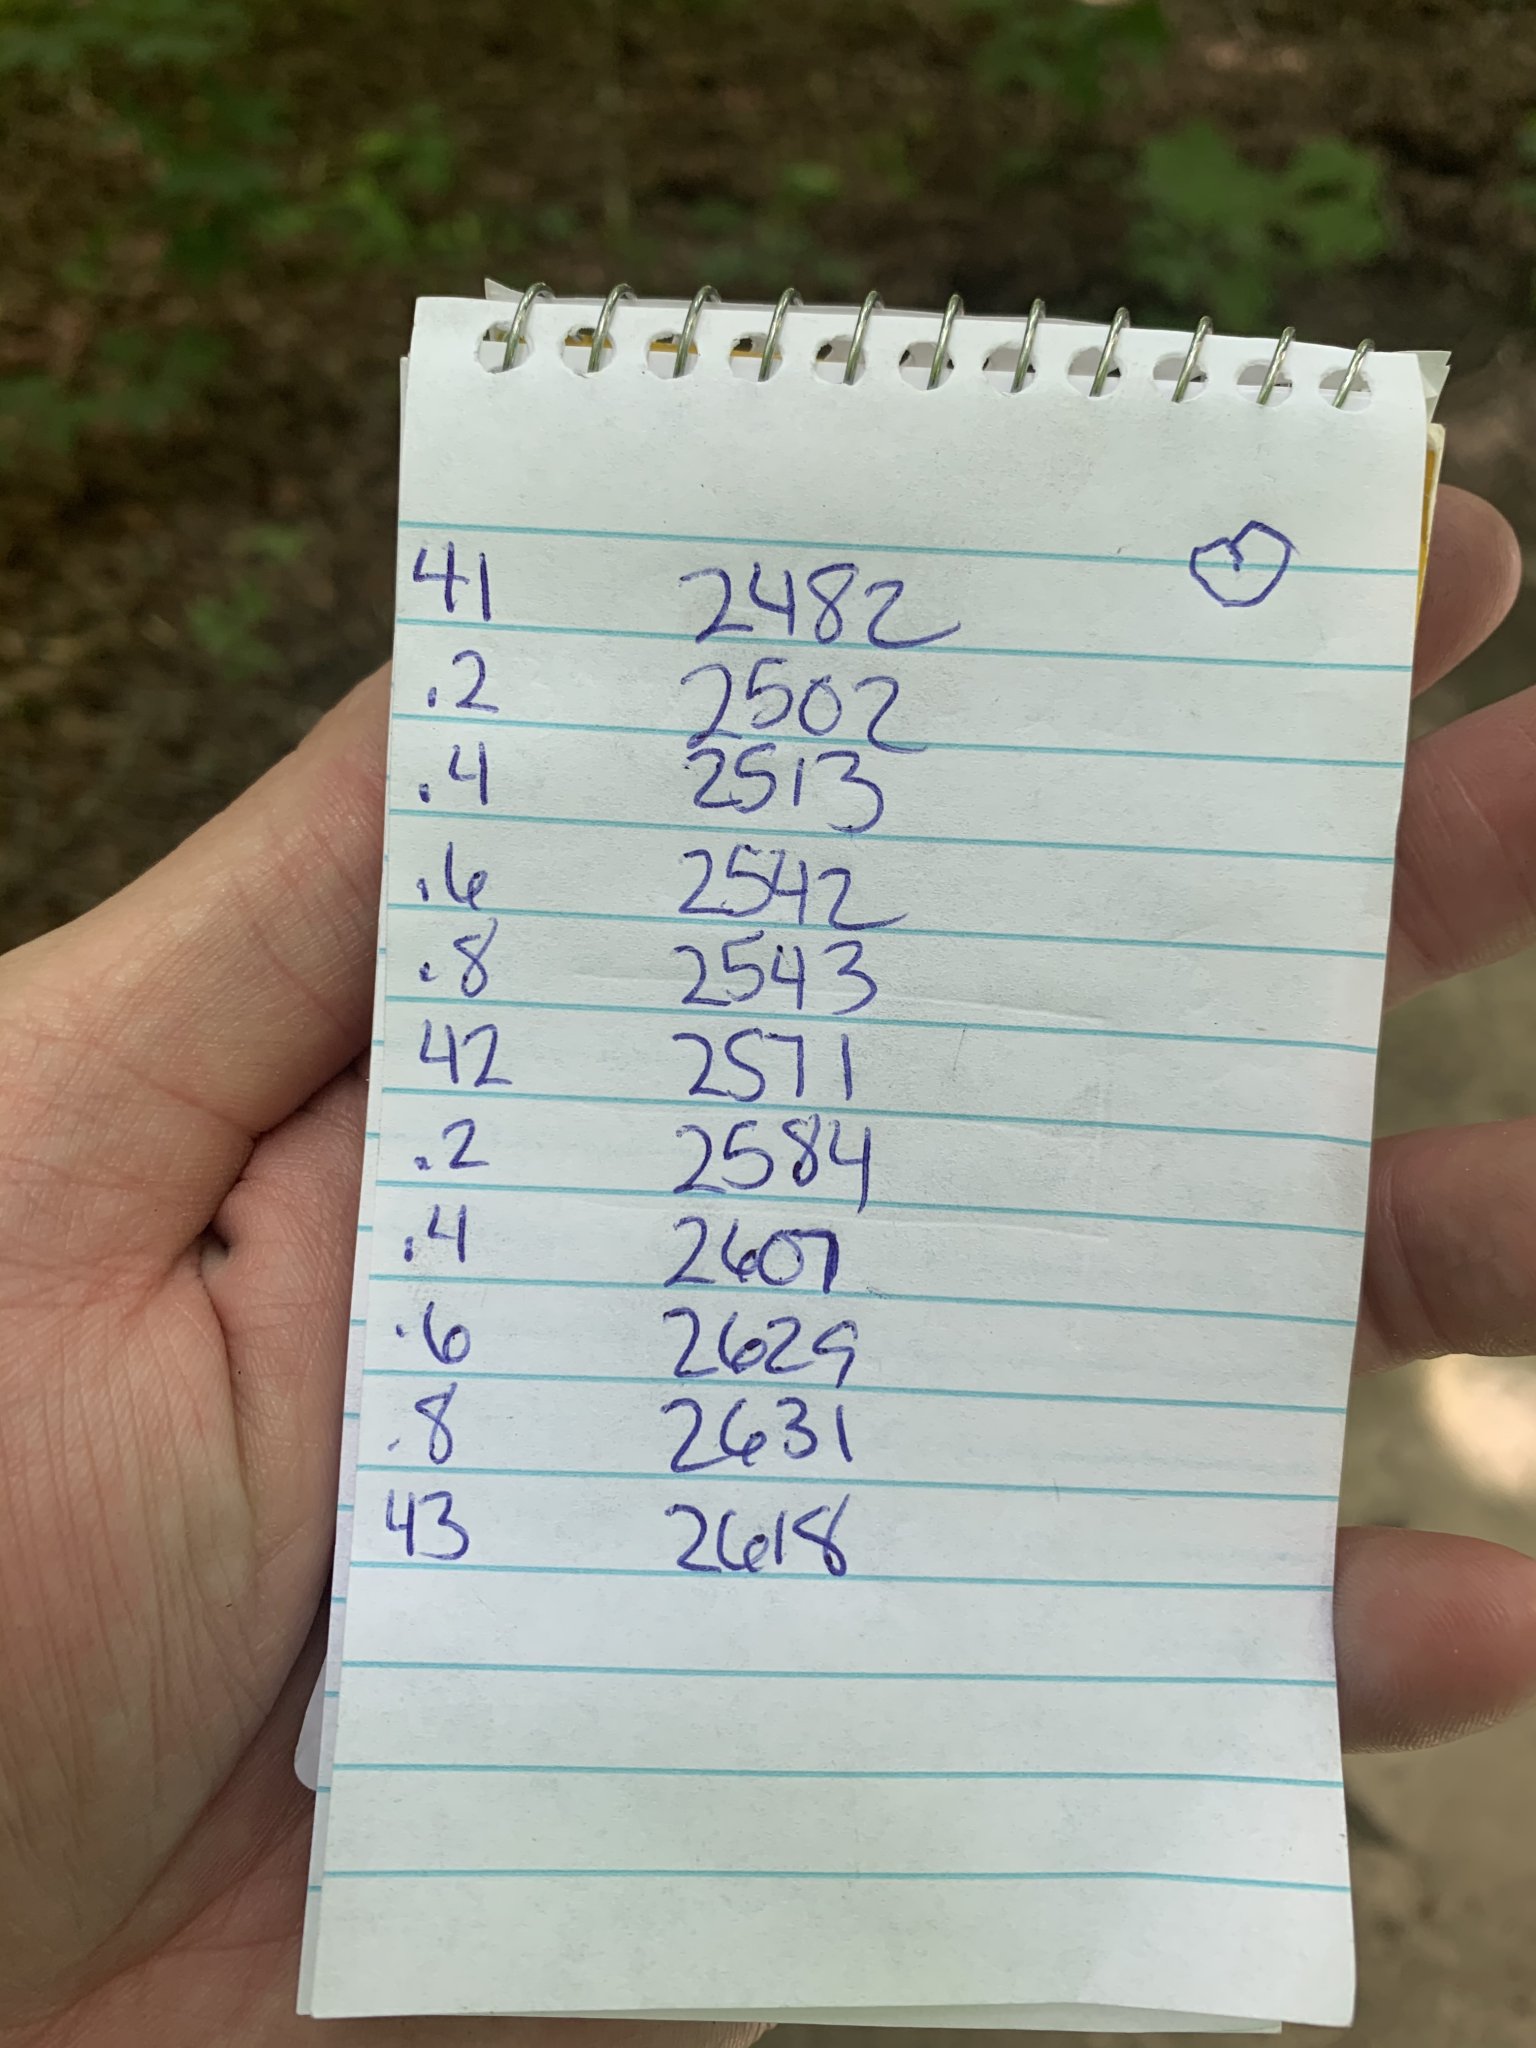 41 2482
.2 2502
.4 2513
.6 2542
.8 2543
42 2571
.2 2584
.4 2607
.6 2629
.8 2631
43 2618